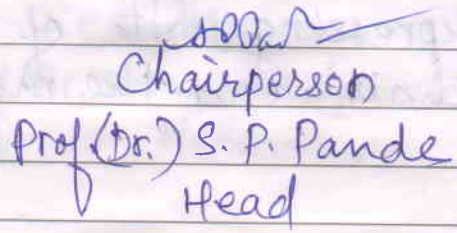 Chairperson
Prof. (Dr.) S. P. Pande
Head